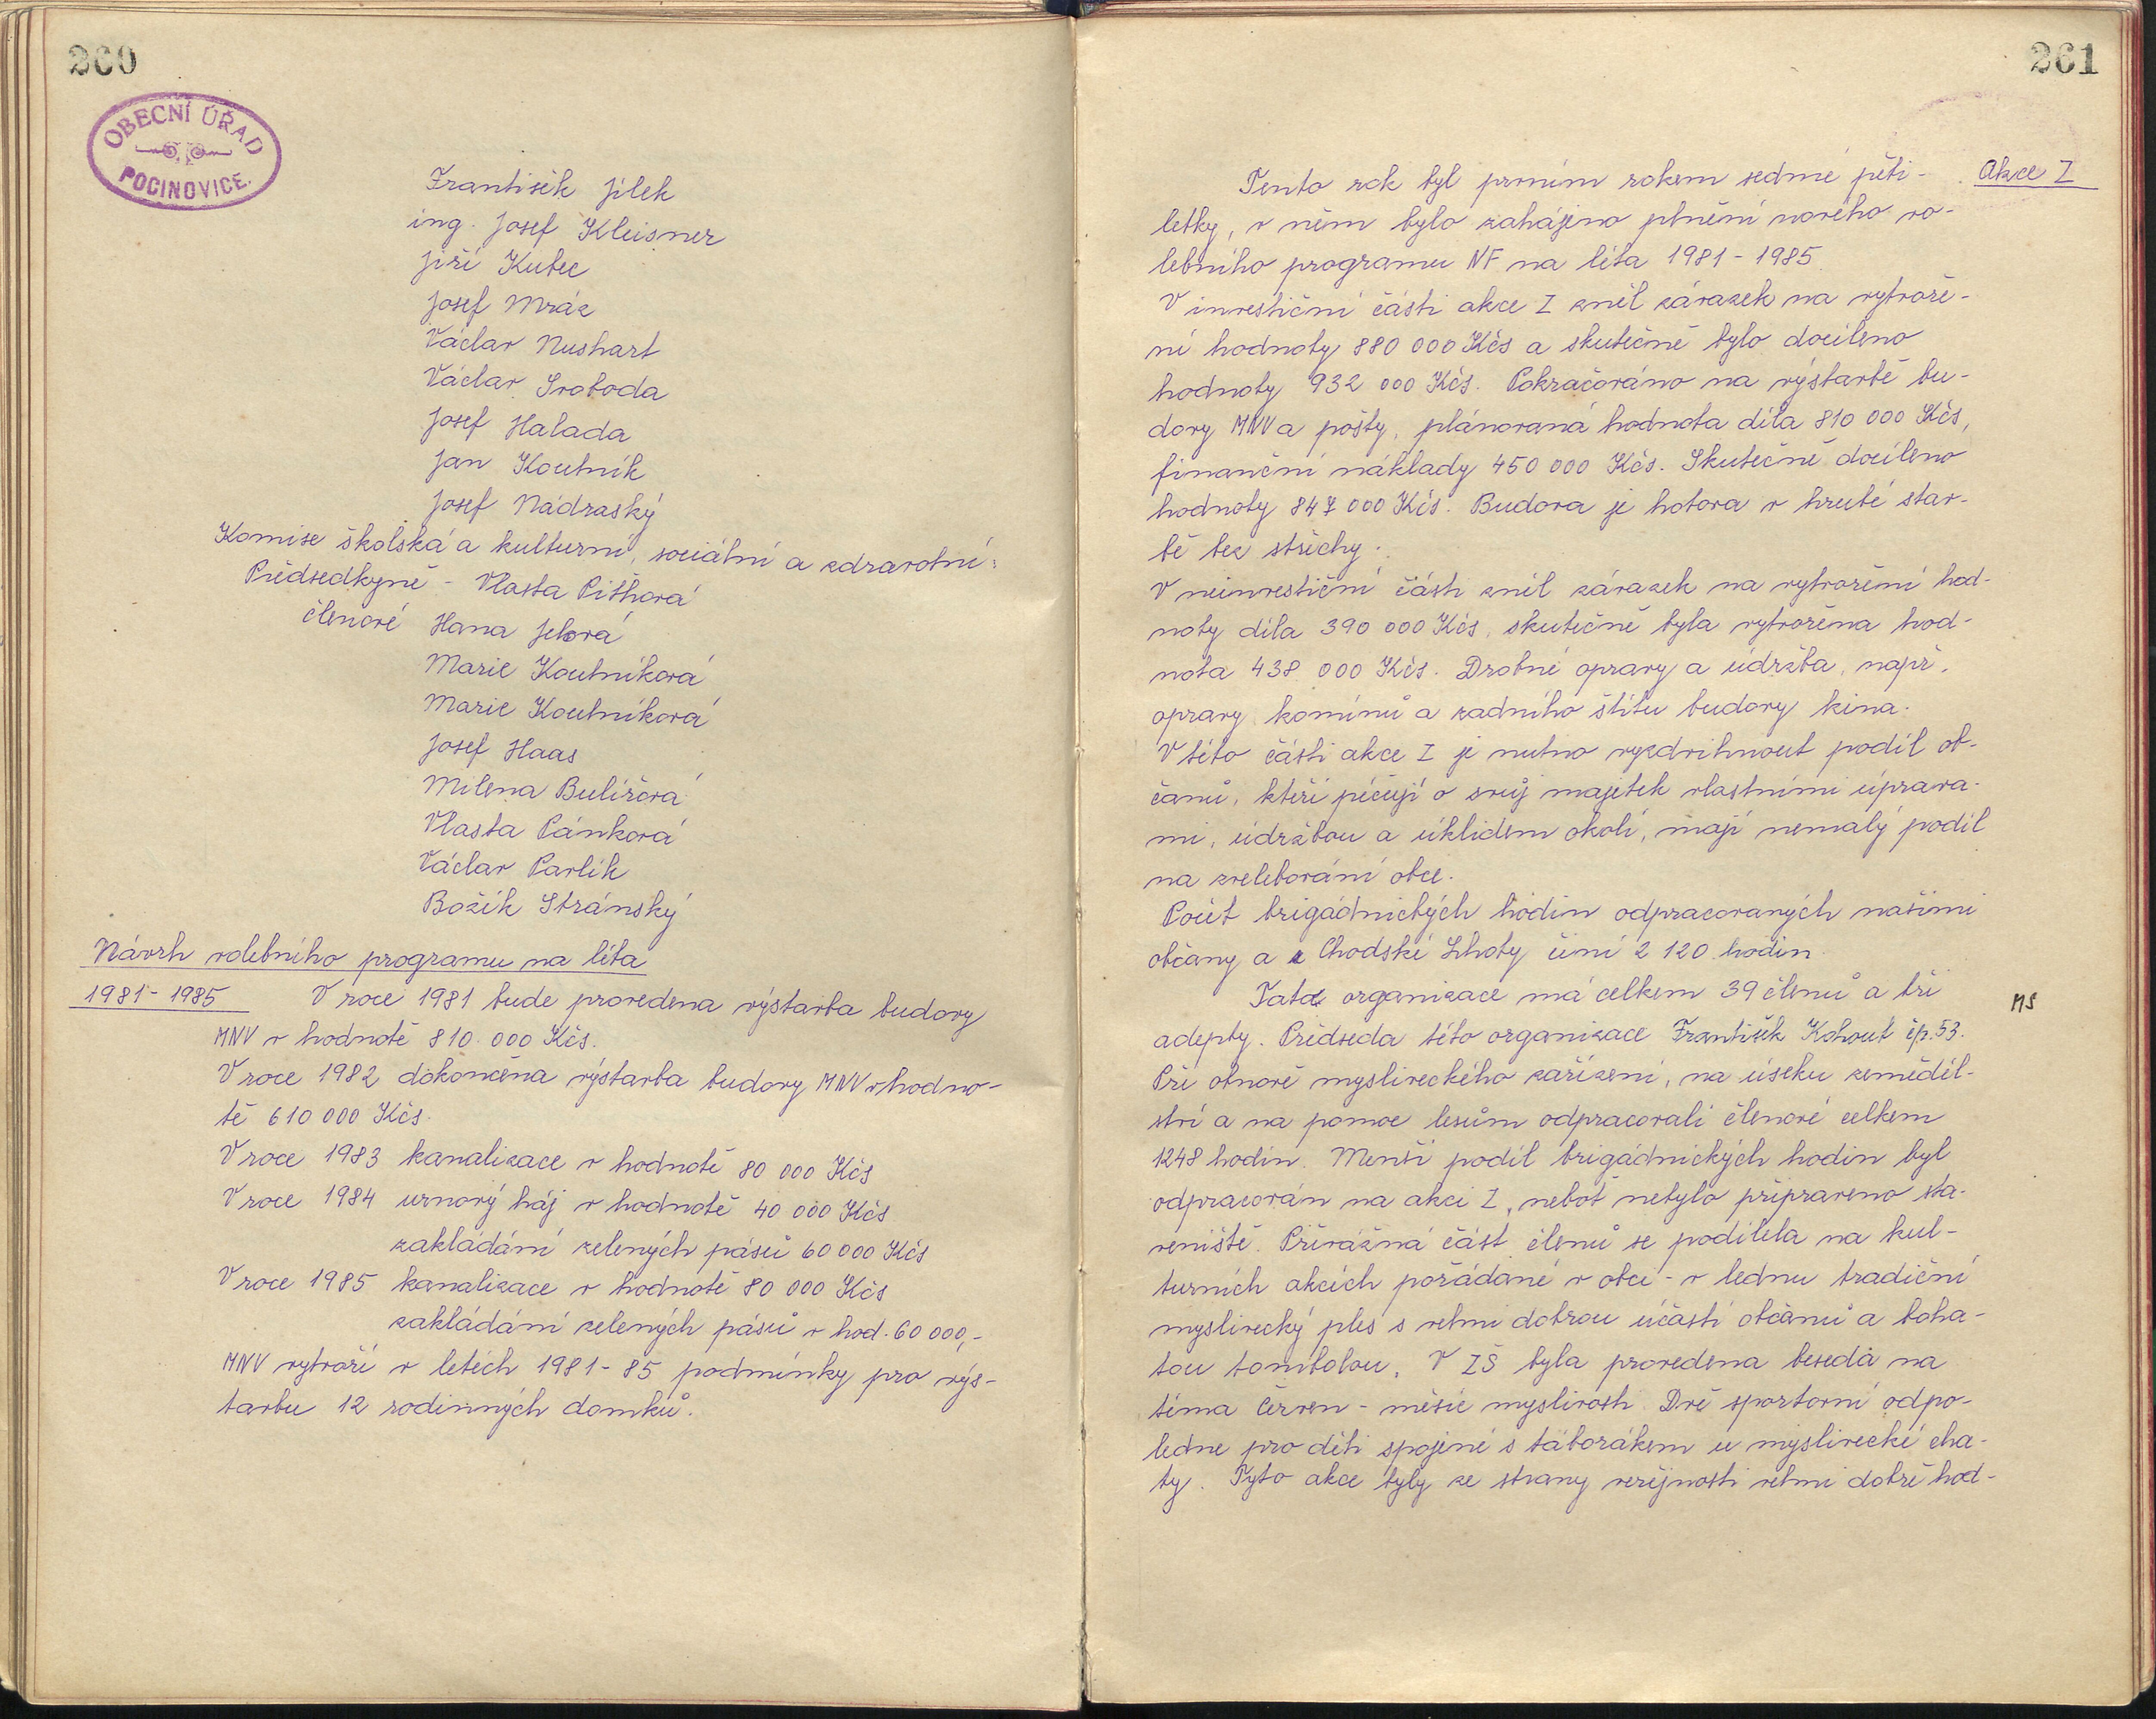 260
OBECNÍ ÚŘAD
POCINOVICE.
František Jílek
ing. Josef Kleisner
Jiří Kubec
Josef Mráz
Václav Nushart
Václav Svoboda
Josef Halada
Jan Koutník
Josef Nádraský
Komise školská a kulturní, sociální a zdravotní:
Předsedkyně - Vlasta Pithová
členové Hana Jelová
Marie Koutníková
Marie Koutníková
Josef Haas
Milena Bulířová
Vlasta Pánková
Václav Pavlík
Božík Stránský
Návrh volebního programu na léta
1981-1985 V roce 1981 bude provedena výstavba budovy
MNV v hodnotě 810 000 Kčs.
V roce 1982 dokončena výstavba budovy MNV v hodno-
tě 610 000 Kčs.
V roce 1983 kanalizace v hodnotě 80 000 Kčs
V roce 1984 urnový háj v hodnotě 40 000 Kčs
zakládání zelených pásů 60 000 Kčs
V roce 1985 kanalizace v hodnotě 80 000 Kčs
zakládání zelených pásů v hod. 60 000,-
MNV vytvoří v letech 1981-85 podmínky pro výs-
tavbu 12 rodinných domků.
261
Tento rok byl prvním rokem sedmé pěti- Akce Z
letky, v něm bylo zahájeno plnění nového vo-
lebního programu NF na léta 1981-1985.
V investiční části akce Z zněl závazek na vytvoře-
ní hodnoty 880 000 Kčs a skutečně bylo docíleno
hodnoty 932 000 Kčs. Pokračováno na výstavbě bu-
dovy MNV a pošty, plánovaná hodnota díla 810 000 Kčs,
finanční náklady 450 000 Kčs. Skutečně docíleno
hodnoty 847 000 Kčs. Budova je hotova v hrubé stav-
bě bez střechy.
V neinvestiční části zněl závazek na vytvoření hod-
noty díla 390 000 Kčs, skutečně byla vytvořena hod-
nota 438 000 Kčs. Drobné opravy a údržba, např.
opravy komínů a zadního štítu budovy kina.
V této části akce Z je nutno vyzdvihnout podíl ob-
čanů, kteří pečují o svůj majetek vlastními úprava-
mi, údržbou a úklidem okolí, mají nemalý podíl
na zvelebování obce.
Počet brigádnických hodin odpracovaných našimi
občany a z Chodské Lhoty činí 2 120 hodin.
Tato organizace má celkem 39 členů a tři MS
adepty. Předseda této organizace František Kohout čp. 53.
Při obnově mysliveckého zařízení, na úseku zeměděl-
ství a na pomoc lesům odpracovali členové celkem
1248 hodin. Menší podíl brigádnických hodin byl
odpracován na akci Z, neboť nebylo připraveno sta-
veniště. Převážná část členů se podílela na kul-
turních akcích pořádané v obci - v lednu tradiční
myslivecký ples s velmi dobrou účastí občanů a boha-
tou tombolou. V ZŠ byla provedena beseda na
téma Červen - měsíc myslivosti. Dvě sportovní odpo-
ledne pro děti spojené s táborákem u myslivecké cha-
ty. Tyto akce byly ze strany veřejnosti velmi dobře hod-